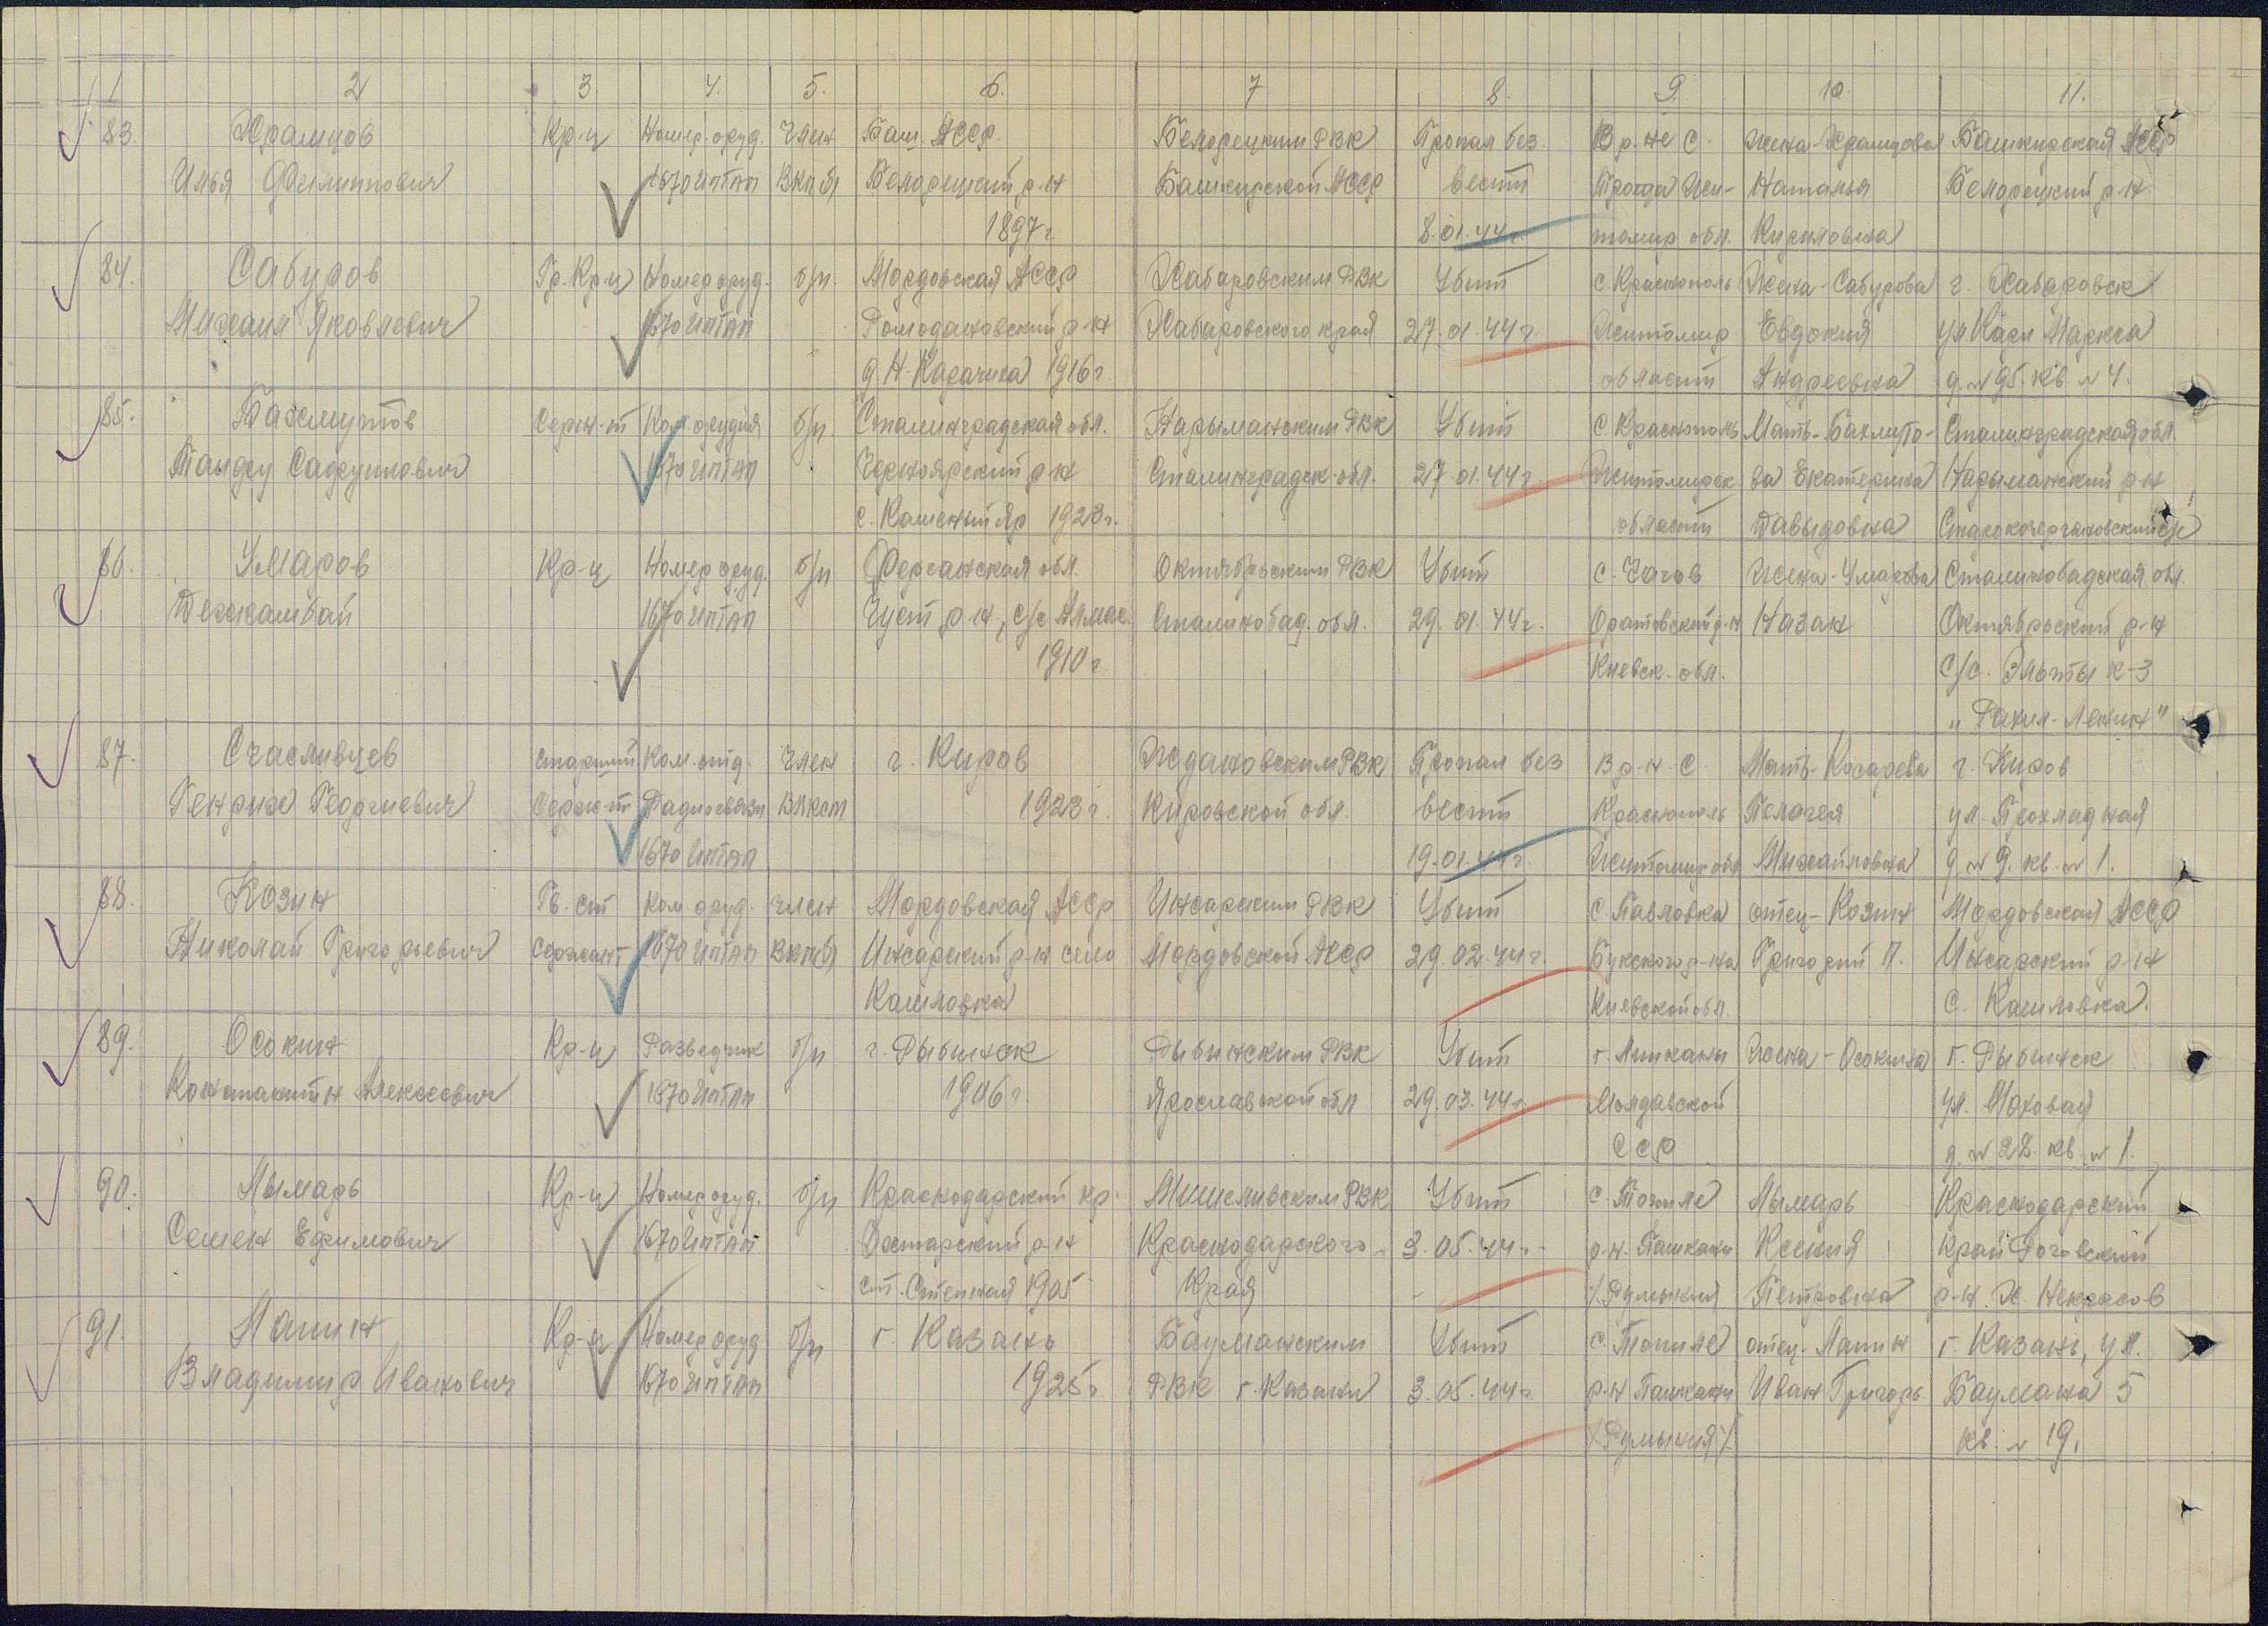 1 2 3. 4. 5. 6. 7 8. 9. 10. 11.
83. Храмцов Кр-ц Номер. оруд. Член Баш. АССР. Белорецким РВК Пропал без В р-не с. жена-Храмцова Башкирская АССР
Илья Филиппович 1670 иптап ВКПб Белорецкий р-н Башкирской АССР вести Жи- Наталья Белорецкий р-н
1897 г. 8.01.44 г. томир обл. Кириловна
84. Сабуров Гв. Кр-ц Номер оруд. б/п. Мордовская АССР Хабаровским РВК Убит с Краснополь Жена-Сабурова г. Хабаровск
Михаил Яковлевич 1670 иптап Ромодановский р-н Хабаровского края 27.01.44 г. Житомир Евдокия ул. Карл Маркса
д. Н-Карачиха 1916 г. области Андреевна д. № 95. кв № 4.
85. Бахмутов Серж-т Ком орудия б/п Сталинградская обл. Нарыманским РВК Убит с. Краснополь Мать-Бахмуто-Сталинградская обл.
Садрунович 1670 иптап Черноярский р-н Сталинградск. обл. 27.01.44 г. Житомирск ва Екатерина Нарыманский р-н
с. Каменный Яр 1923 г. области Давыдовна
86. Умаров Кр-ц Номер оруд. б/п Ферганская обл. Октябрьским РВК Убит с. Чагов жена-Умарова Сталинобадская обл.
Дехкамбай 1670 иптап Чуст р-н, с/с Алмас. Сталинобад. обл. 29.01.44 г. Оратовский р-н Назан Октябрьский р-н
1910 г. Киевск. обл. с/с. к-з
87. Счасливцев старший Ком. отд. член г. Киров Ждановским РВК Пропал без В р-н. с. Мать-Косарева г. Киров
Генрих Георгиевич Серж-т Радиосвязи ВЛКСМ 1923 г. Кировской обл. вести Краснополь Пелагея ул. Прохладная
1670 иптап 19.01.44 г. Житомир обл Михайловна д. № 9. кв. № 1.
88. Козин Гв. ст Ком оруд. член Мордовская АССР Инсарским РВК Убит с. Павловка отец-Козин Мордовская АССР
Николай Григорьевич Сержант 1670 иптап ВКПб Инсарский р-н село Мордовской АССР 29.02.44 г. Букского р-на Григорий П. Инсарский р-н
Кашловка Киевской обл. с. Кашловка.
89. Осокин Кр-ц Разведчик б/п г. Рыбинск Рыбинским РВК Убит г. Липканы жена-Осокина г. Рыбинск
Констактин Алексеевич 1670 иптап 1906 г. Ярославской обл 29.03.44 г. Молдавской ул. Моховая
ССР д. № 28. кв. № 1.
90. Лымарь Кр-ц Номер оруд. б/п Краснодарский кр. РВК Убит с. Топиле Лымарь Краснодарский
Семен Ефимович 1670 иптап р-н Краснодарского 3.05.44 г. р-н. Пашкани Ксения край Роговский
ст. Степная 1905 Края /Румыния Петровна р-н. х. Некрасов
91. Лапин Кр-ц Номер оруд б/п г. Казань Бауманским Убит с. Топиле отец-Лапин г. Казань, ул.
Владимир Иванович 1670 иптап 1925 г. РВК г. Казани 3.05.44 г. р-н Пашкани Иван Григорь Баумана 5
/Румыния/. кв. № 19.